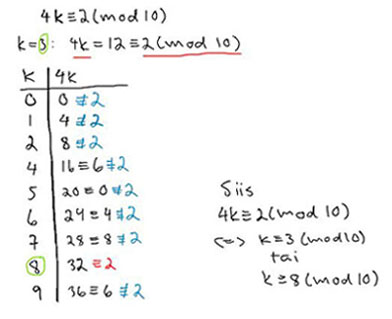 4k≡2(mod 10)
k=3: 4k=12≡2(mod 10)
k | 4k
0 | 0≢2
1 | 4≢2
2 | 8≢2
4 | 16≡6≢2
5 | 20≡0≢2
6 | 24≡4≢2
7 | 28≡8≢2
8 | 32≡2
9 | 36≡6≢2
Siis
4k≡2(mod 10)
<=> k≡3(mod 10)
tai
k≡8(mod 10)